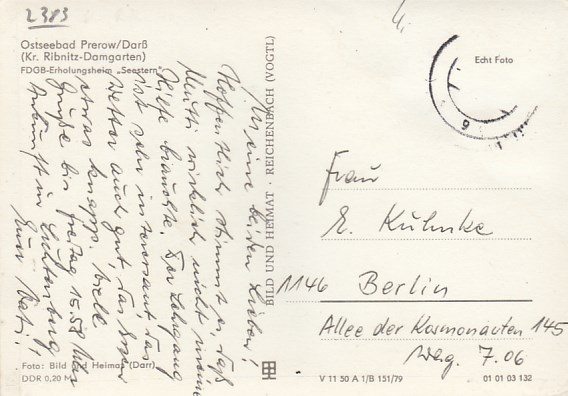 2383
Ostseebad Prerow/Darß
(Kr. Ribnitz-Damgarten)
FDGB-Erholungsheim "Seestern"
Meine beiden Lieben!
Hoffentlich stimmt es, daß
Mutti wirklich nicht meine
Hilfe brauchte. Der Lehrgang
ist sehr interessant, das
Wetter auch gut, das Essen
etwas knapp. Viele
Grüße bis Freitag 15.58 Uhr
Ankunft in Lichtenberg
Euer Vati!
Foto: Bild und Heimat (Darr)
DDR 0,20 M
BILD UND HEIMAT · REICHENBACH (VOGTL)
Echt Foto
Frau
E. Kuhnke
1146 Berlin
Allee der Kosmonauten 145
Wg. 7.06
V 11 50 A 1/B 151/79
01 01 03 132